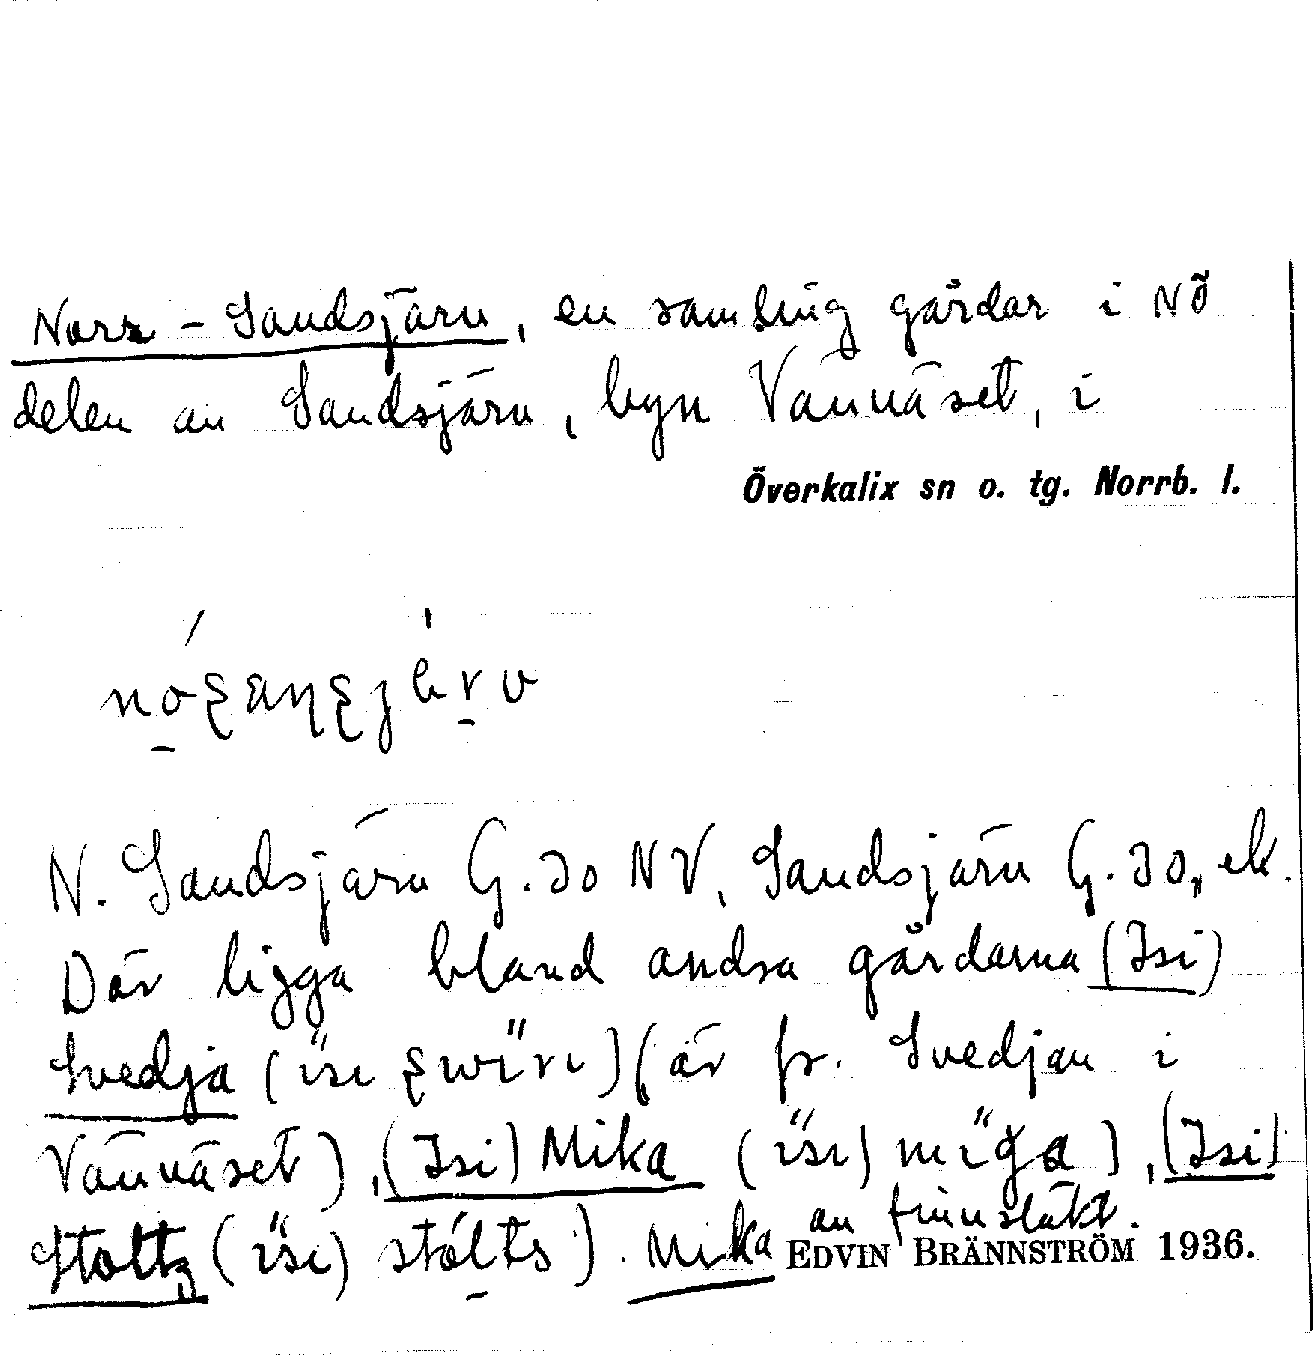 Norr-Sandsjärv, en samling gårdar i NÖ
delen av Sandsjärv, byn Vännäset, i
Överkalix sn o. tg. Norrb. l.
N. Sandsjärv G. 30 NV, Sandsjärv G. 30, ek.
Där ligga bland andra gårdarna (Isi)
Svedja (är fr. Svedjan i
Vännäset), (Isi) Mika (ïsı), (Isi)
Stoltz (ïsı) stólts). Mika av finnsläkt.
EDVIN BRÄNNSTRÖM 1936.